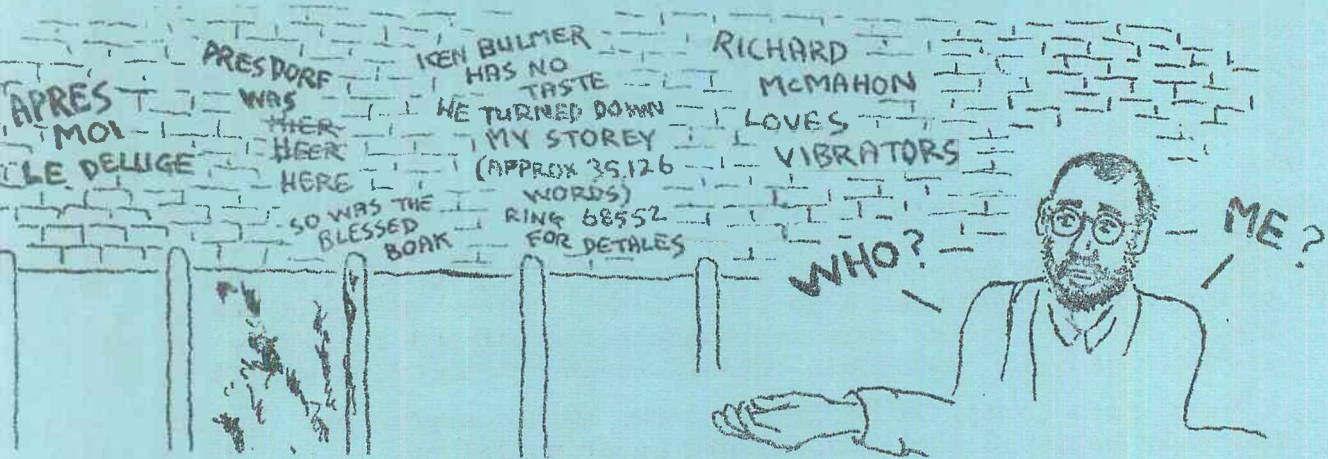 APRES
MOI
LE DELUGE
PRESDORF
WAS
HIER
HEER
HERE
SO WAS THE
BLESSED
BOAK
KEN BULMER
HAS NO
TASTE
HE TURNED DOWN
MY STOREY
(APPROX 35,126
WORDS)
RING 68552
FOR DETALES
RICHARD
MCMAHON
LOVES
VIBRATORS
WHO?
ME?